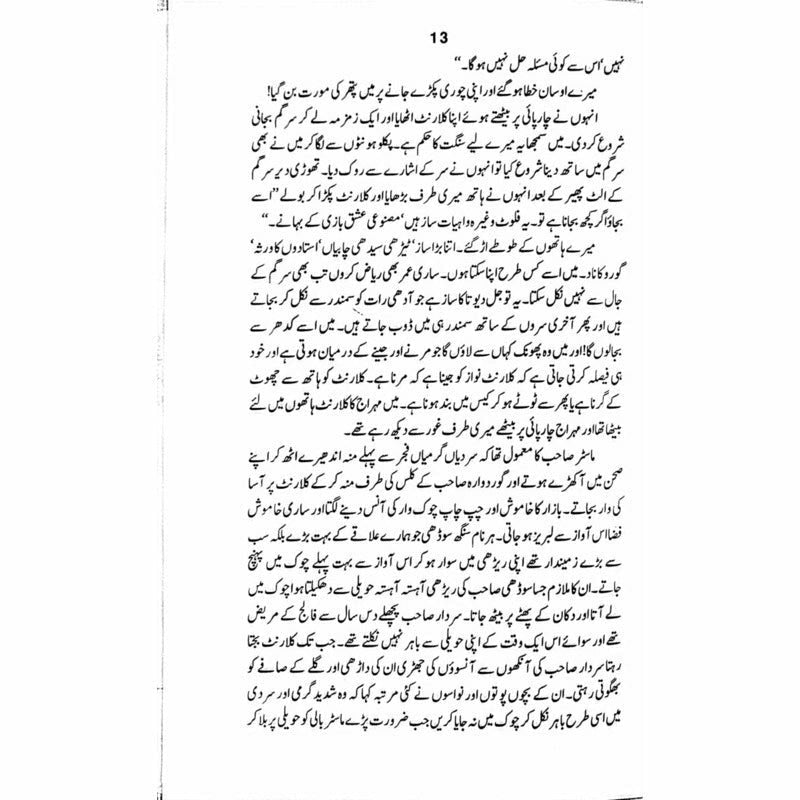 13
نہیں‘ اس سے کوئی مسئلہ حل نہیں ہو گا۔“
میرے اوسان خطا ہو گئے اور اپنی چوری پکڑے جانے پر میں پتھر کی مورت بن گیا!
انہوں نے چارپائی پر بیٹھتے ہوئے اپنا کلارنٹ اٹھایا اور ایک زمزمہ لے کر سرگم بجانی
شروع کر دی۔ میں سمجھا یہ میرے لیے سنگت کا حکم ہے۔ پکلو ہونٹوں سے لگا کر میں نے بھی
سرگم میں ساتھ دینا شروع کیا تو انہوں نے سر کے اشارے سے روک دیا۔ تھوڑی دیر سرگم
کے الٹ پھیر کے بعد انہوں نے ہاتھ میری طرف بڑھایا اور کلارنٹ پکڑا کر بولے ”اسے
بجاؤ اگر کچھ بجانا ہے تو۔ یہ فلوٹ وغیرہ واہیات ساز ہیں‘ مصنوعی عشق بازی کے بہانے۔“
میرے ہاتھوں کے طوطے اڑ گئے۔ اتنا بڑا ساز‘ ٹیڑھی سیدھی چابیاں‘ استادوں کا ورثہ‘
گورو کا ناد۔ میں اسے کس طرح اپنا سکتا ہوں۔ ساری عمر بھی ریاض کروں تب بھی سرگم کے
جال سے نہیں نکل سکتا۔ یہ تو جل دیوتا کا ساز ہے جو آدھی رات کو سمندر سے نکل کر بجاتے
ہیں اور پھر آخری سروں کے ساتھ سمندر ہی میں ڈوب جاتے ہیں۔ میں اسے کدھر سے
بجالوں گا! اور میں وہ پھونک کہاں سے لاؤں گا جو مرنے اور جینے کے درمیان ہوتی ہے اور خود
ہی فیصلہ کرتی جاتی ہے کہ کلارنٹ نواز کو جینا ہے کہ مرنا ہے۔ کلارنٹ کو ہاتھ سے چھوٹ
کے گرنا ہے یا پھر سے ٹوٹے ہو کر کیس میں بند ہونا ہے۔ میں مہراج کا کلارنٹ ہاتھوں میں لئے
بیٹھا تھا اور مہراج چارپائی پر بیٹھے میری طرف غور سے دیکھ رہے تھے۔
ماسٹر صاحب کا معمول تھا کہ سردیاں گرمیاں فجر سے پہلے منہ اندھیرے اٹھ کر اپنے
صحن میں آ کھڑے ہوتے اور گوردوارہ صاحب کے کلس کی طرف منہ کر کے کلارنٹ پر آسا
کی وار بجاتے۔ بازار کا خاموش اور چپ چاپ چوک وار کی آنس دینے لگتا اور ساری خاموش
فضا اس آواز سے لبریز ہو جاتی۔ ہرنام سنگھ سوڈھی جو ہمارے علاقے کے بہت بڑے بلکہ سب
سے بڑے زمیندار تھے اپنی ریڑھی میں سوار ہو کر اس آواز سے بہت پہلے چوک میں پہنچ
جاتے۔ ان کا ملازم جسا سوڈھی صاحب کی ریڑھی آہستہ آہستہ حویلی سے دھکیلتا ہوا چوک میں
لے آتا اور دکان کے پھٹے پر بیٹھ جاتا۔ سردار صاحب پچھلے دس سال سے فالج کے مریض
تھے اور سوائے اس ایک وقت کے اپنی حویلی سے باہر نہیں نکلتے تھے۔ جب تک کلارنٹ بجتا
رہتا سردار صاحب کی آنکھوں سے آنسوؤں کی جھڑی ان کی داڑھی اور گلے کے صافے کو
بھگوتی رہتی۔ ان کے بچوں پوتوں اور نواسوں نے کئی مرتبہ کہا کہ وہ شدید گرمی اور سردی
میں اسی طرح باہر نکل کر چوک میں نہ جایا کریں جب ضرورت پڑے ماسٹر بالی کو حویلی پر بلا کر